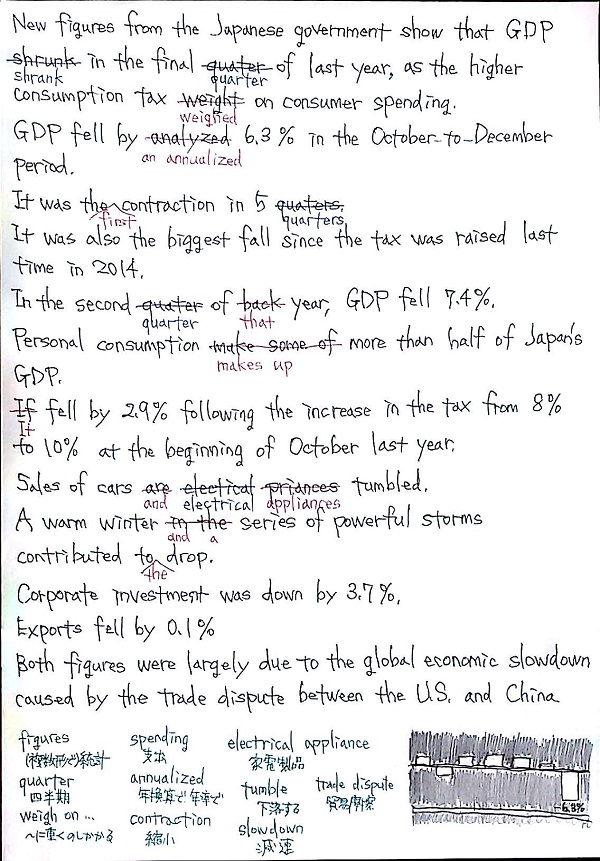 New figures from the Japanese government show that GDP
shrunk in the final quater of last year, as the higher
shrank quarter
consumption tax weight on consumer spending.
weighed
GDP fell by analyzed 6.3% in the October-to-December
an annualized
period.
It was the contraction in 5 quaters.
first quarters
It was also the biggest fall since the tax was raised last
time in 2014.
In the second quater of back year, GDP fell 7.4%.
quarter that
Personal consumption make some of more than half of Japan's
makes up
GDP.
If fell by 2.9% following the increase in the tax from 8%
It
to 10% at the beginning of October last year.
Sales of cars are electical priances tumbled.
and electrical appliances
A warm winter in the series of powerful storms
and a
contributed to drop.
the
Corporate investment was down by 3.7%.
Exports fell by 0.1%
Both figures were largely due to the global economic slowdown
caused by the trade dispute between the U.S. and China
figures spending electrical appliance
(複数形で)統計 支出 家電製品
quarter annualized tumble trade dispute
四半期 年換算で 年率で 下落する 貿易摩擦
weigh on ... contraction slowdown
〜に重くのしかかる 縮小 減速
-6.3%